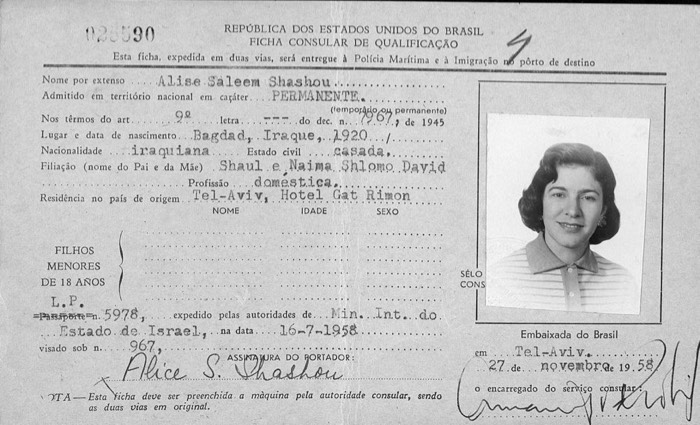 028590
REPÚBLICA DOS ESTADOS UNIDOS DO BRASIL
FICHA CONSULAR DE QUALIFICAÇÃO
Esta ficha, expedida em duas vias, será entregue à Polícia Marítima e à Imigração no pôrto de destino
Nome por extenso Alise Saleem Shashou
Admitido em território nacional em caráter PERMANENTE.
(temporário ou permanente)
Nos têrmos do art 9º letra --- do dec. n. 7967, de 1945
Lugar e data de nascimento Bagdad, Iraque, 1920 /
Nacionalidade iraquiana Estado civil casada.
Filiação (nome do Pai e da Mãe) Shaul e Naima Shlomo David
Profissão doméstica.
Residência no país de origem Tel-Aviv, Hotel Gat Rimon
NOME IDADE SEXO
FILHOS
MENORES
DE 18 ANOS
L.P.
Passaporte n. 5978, expedido pelas autoridades de Min. Int. do
Estado de Israel, na data 16-7-1958
visado sob n. 967,
ASSINATURA DO PORTADOR:
Alice S. Shashou
NOTA — Esta ficha deve ser preenchida a màquina pela autoridade consular, sendo
as duas vias em original.
SÊLO
CONS
Embaixada do Brasil
em Tel-Aviv.
27 de novembro de 1958
o encarregado do serviço consular: